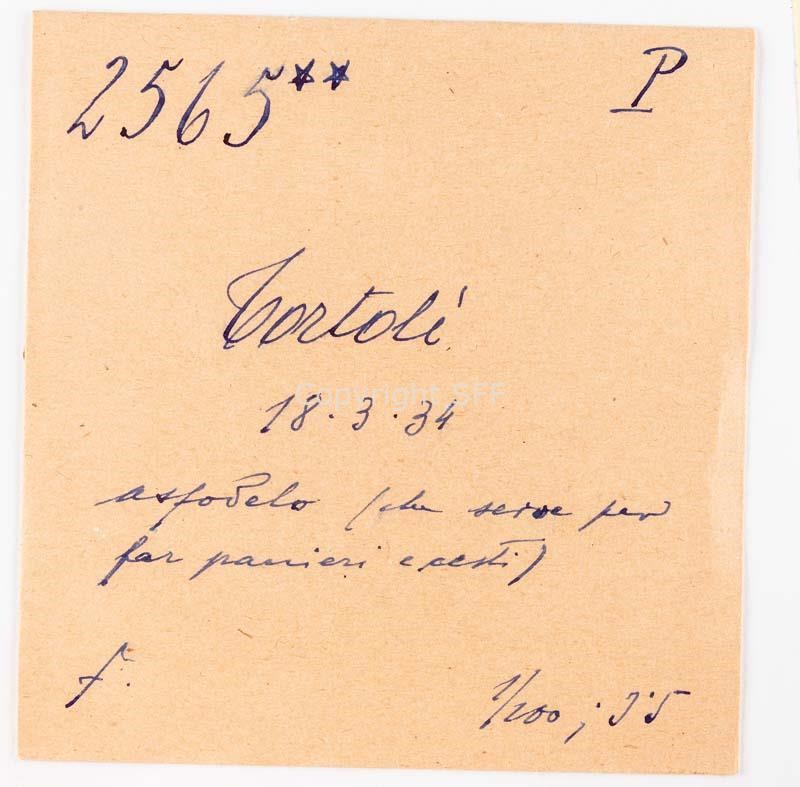 2565** P
Tortolí
Copyright SFF
18.3.34
asfodelo (che serve per
far panieri e cesti)
f.
1/200 ; 3'5